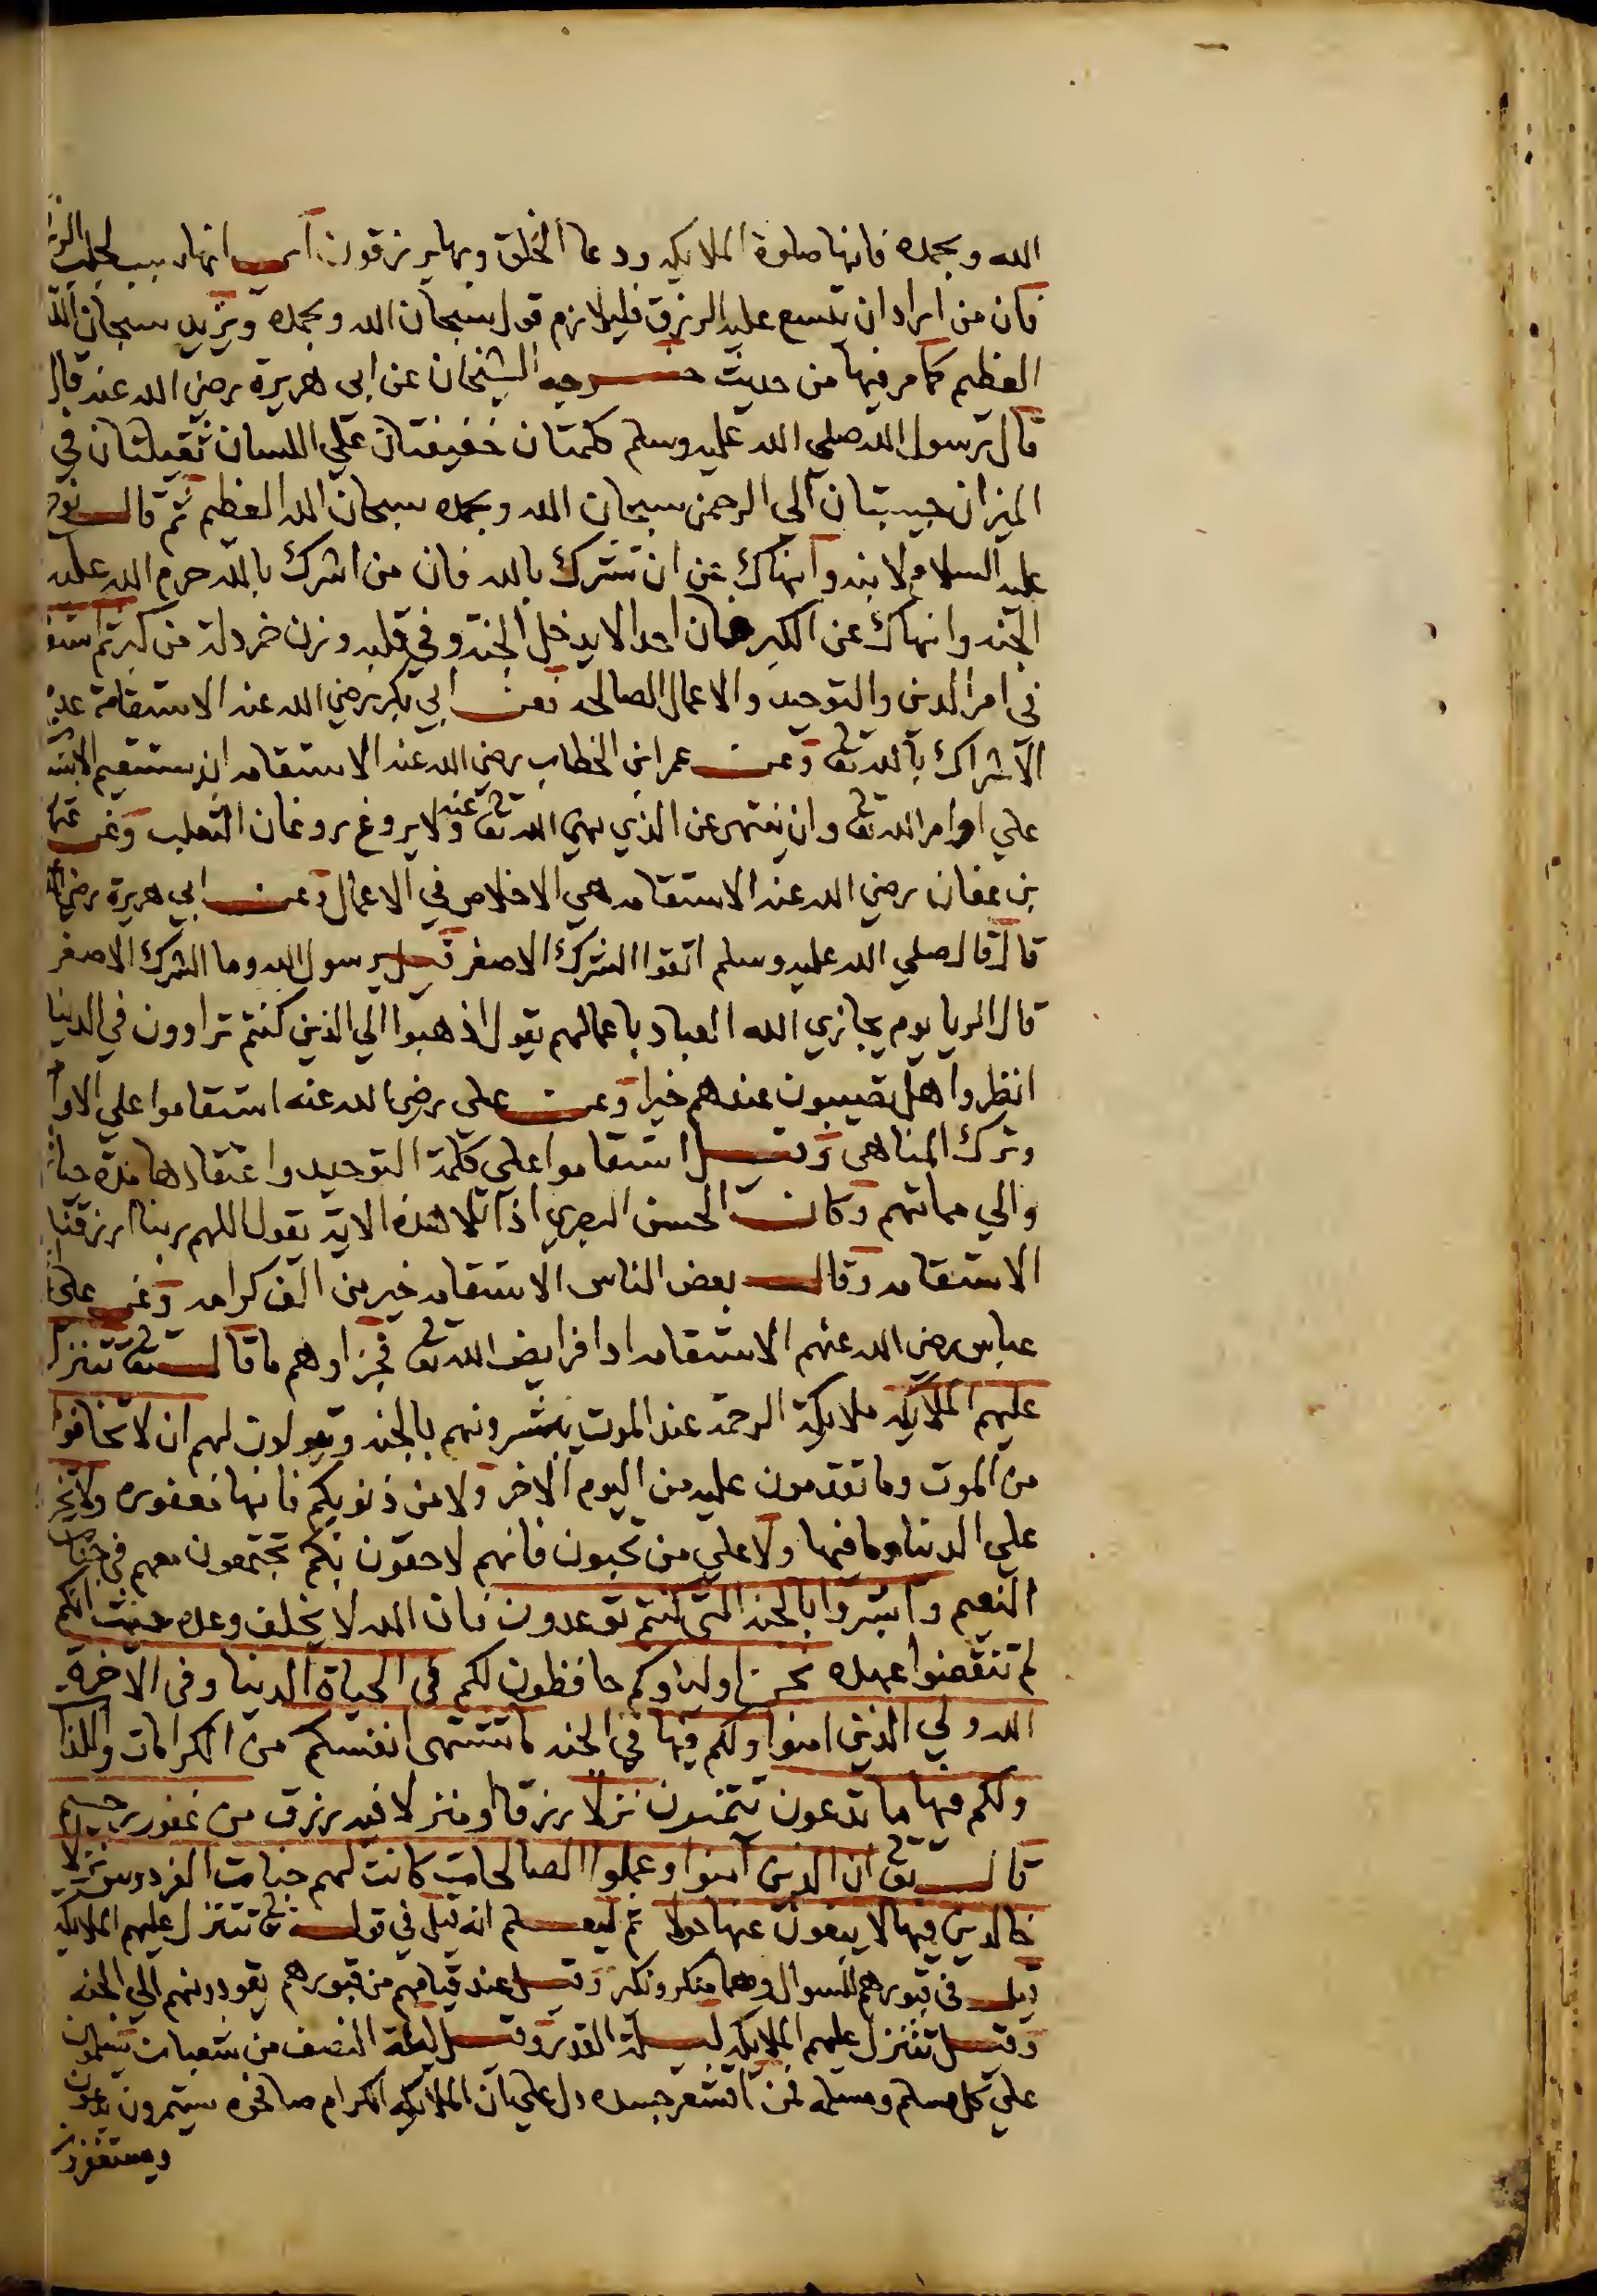 الله وبحمده فانها صلوة الملايكه ودعا الخلق وبها يرزقون اي انها سبب لجلب الرزق
فان من اراد ان يتسع عليه الرزق فليلازم قول سبحان الله وبحمده ويزيد سبحان الله
العظيم كما مر فيها من حديث خرجه الشيخان عن ابي هريرة رضي الله عنه قال
قال رسول الله صلي الله عليه وسلم كلمتان خفيفتان علي اللسان ثقيلتان في
الميزان حبيبتان الي الرحمن سبحان الله وبحمده سبحان الله العظيم ثم قال نوح
عليه السلام لابنه وانهاك عن ان تشرك بالله فان من اشرك بالله حرم الله عليه
الجنه وانهاك عن الكبر فان احدا لا يدخل الجنة وفي قلبه وزن خردلة من كبر ثم استقاموا
في امر الدين والتوحيد والاعمال الصالحه فعن ابي بكر رضي الله عنه الاستقامة عدم
الاشراك بالله تعالى وعن عمر ابن الخطاب رضي الله عنه الاستقامه ان يستقيم الانسان
علي اوامر الله تعالى وان ينتهي عن الذي نهى الله تعالى عنه ولا يروغ روغان الثعلب وعن عثمان
بن عفان رضي الله عنه الاستقامه هي الاخلاص في الاعمال وعن ابي هريرة رضي الله
قال قال صلي الله عليه وسلم اتقوا الشرك الاصغر قيل يرسول الله وما الشرك الاصغر
قال الريا يوم يجازي الله العباد باعمالهم يقول اذهبوا الي الذين كنتم تراوون في الدنيا
انظروا هل تصيبون عندهم خيرا وعن علي رضي الله عنه استقاموا علي الاوامر
وترك المناهي وقيل استقاموا علي كلمة التوحيد واعتقادها مدة حياتهم
والي مماتهم وكان الحسن البصري اذا تلا هذه الاية يقول اللهم ربنا ارزقنا
الاستقامه وقال بعض الناس الاستقامه خير من الف كرامه وعن علي وابن
عباس رضي الله عنهم الاستقامه ادا فرايض الله تعالى فجزاوهم ما قال تعالى تتنزل
عليهم الملايكه ملايكة الرحمة عند الموت يبشرونهم بالجنه ويقولون لهم ان لا تخافوا
من الموت وما تقدمون عليه من اليوم الاخر ولا من ذنوبكم فانها مغفوره ولا تحزنوا
علي الدنيا وما فيها ولا علي من تحبون فانهم لاحقون بكم تجتمعون معهم في جنات
النعيم وابشروا بالجنه التي كنتم توعدون فان الله لا يخلف وعده حيث انكم
لم تنقضوا عهده نحن اولياوكم حافظون لكم في الحياة الدنيا وفي الاخرة
الله ولي الذين امنوا ولكم فيها في الجنه ما تشتهي انفسكم من الكرامات واللذات
ولكم فيها ما تدعون تتمنون نزلا رزقا او منزلا فيه رزق من غفور رحيم
قال تعالى ان الذين آمنوا وعملوا الصالحات كانت لهم جنات الفردوس نزلا
خالدين فيها لا يبغون عنها حولا ثم ليعلم انه قيل في قوله تعالى تتنزل عليهم الملايكه
قيل في قبورهم للسوال وهما منكر ونكير وقيل عند قيامهم من قبورهم يقودونهم الي الجنه
وقيل تتنزل عليهم الملايكه ليلة القدر وقيل ليلة النصف من شعبان يسلمون
علي كل مسلم ومسلمه فمن اقشعر جسده دل علي ان الملايكه الكرام صافحوه يستمرون يدعون
ويستغفرون